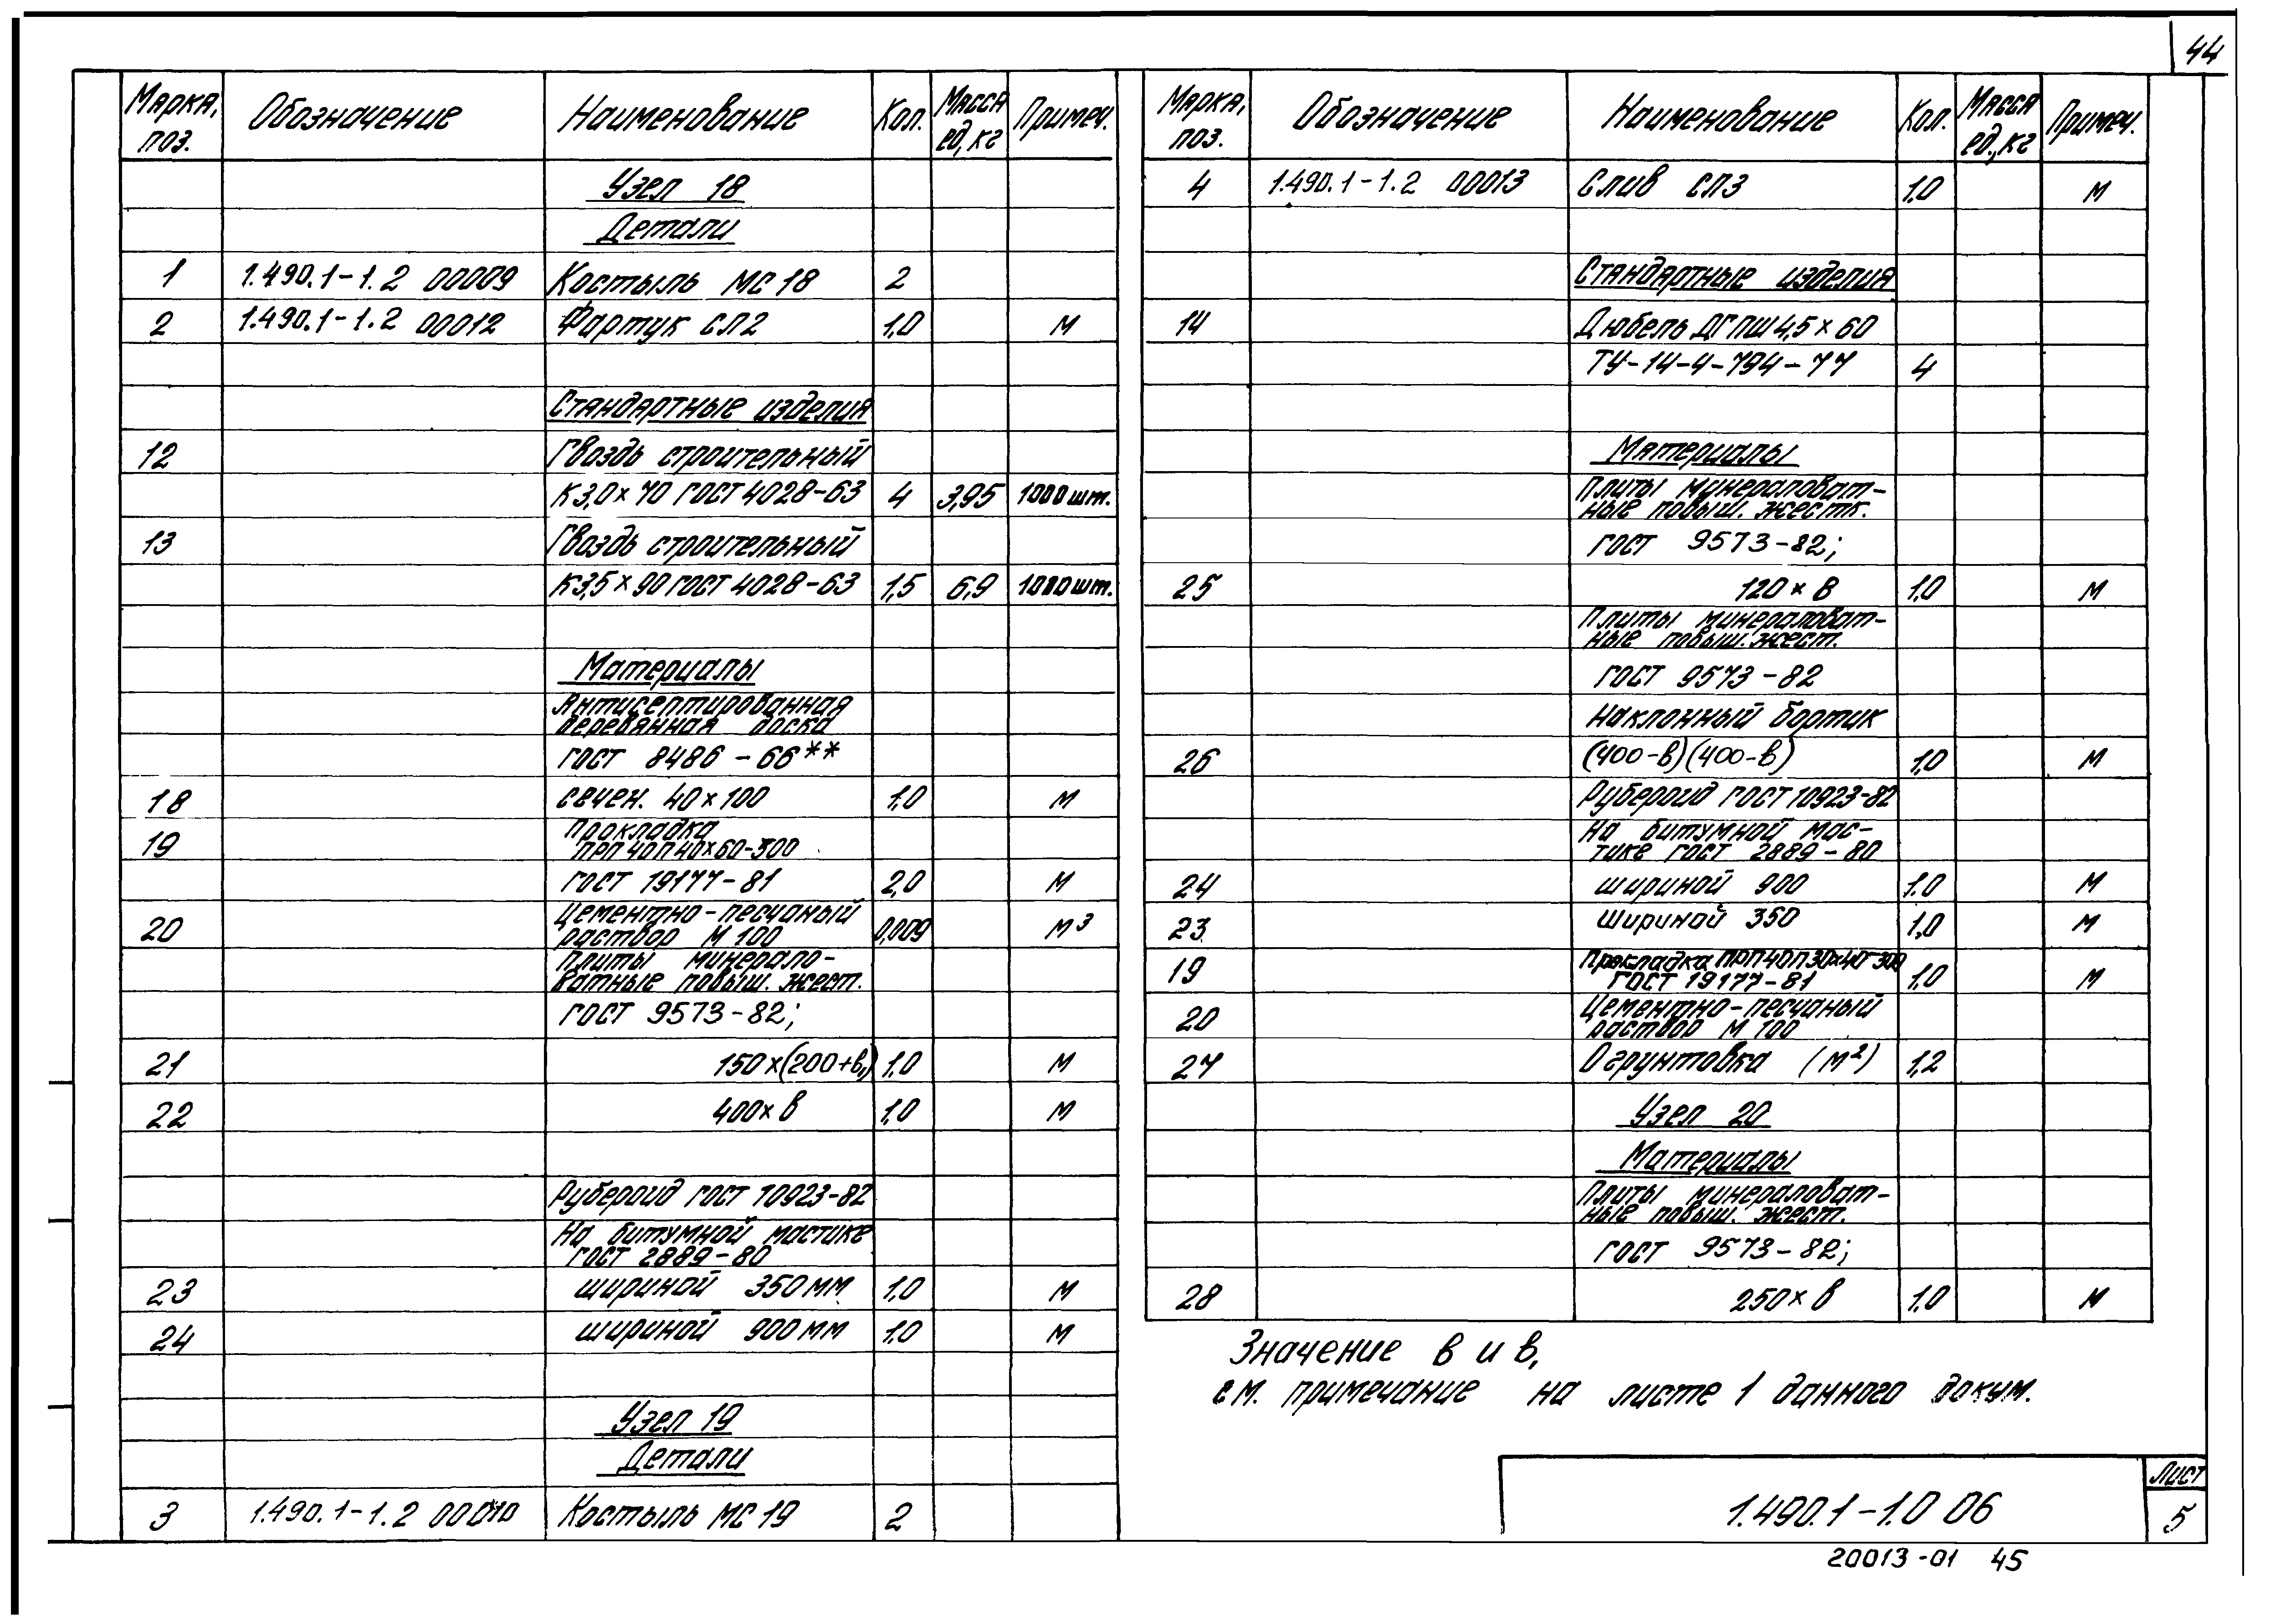 44
Марка, поз. Обозначение Наименование Кол. Масса ед, кг Примеч.
Узел 18
Детали
1 1.490.1-1.2 00009 Костыль МС 18 2
2 1.490.1-1.2 00012 Фартук СЛ2 1,0 м
Стандартные изделия
12 Гвоздь строительный
К3,0×70 ГОСТ 4028-63 4 3,95 1000 шт.
13 Гвоздь строительный
К3,5×90 ГОСТ 4028-63 1,5 6,9 1000 шт.
Материалы
Антисептированная
деревянная доска
ГОСТ 8486-66**
18 сечен. 40×100 1,0 м
19 Прокладка
ПРП 40П 40×60-300
ГОСТ 19177-81 2,0 м
20 Цементно-песчаный
раствор М 100 0,009 м³
Плиты минерало-
ватные повыш. жест.
ГОСТ 9573-82;
21 150×(200+в₁) 1,0 м
22 400×в 1,0 м
Рубероид ГОСТ 10923-82
На битумной мастике
ГОСТ 2889-80
23 шириной 350 мм 1,0 м
24 шириной 900 мм 1,0 м
Узел 19
Детали
3 1.490.1-1.2 00010 Костыль МС 19 2
Марка, поз. Обозначение Наименование Кол. Масса ед., кг Примеч.
4 1.490.1-1.2 00013 Слив СЛ3 1,0 м
Стандартные изделия
14 Дюбель ДГПШ 4,5×60
ТУ-14-4-794-77 4
Материалы
Плиты минераловат-
ные повыш. жестк.
ГОСТ 9573-82;
25 120×в 1,0 м
Плиты минераловат-
ные повыш. жест.
ГОСТ 9573-82
Наклонный бортик
26 (400-в)(400-в) 1,0 м
Рубероид ГОСТ 10923-82
На битумной мас-
тике ГОСТ 2889-80
24 шириной 900 1,0 м
23 шириной 350 1,0 м
19 Прокладка ПРП 40П 30×40-300
ГОСТ 19177-81 1,0 м
20 Цементно-песчаный
раствор М 100
27 Огрунтовка (м²) 1,2
Узел 20
Материалы
Плиты минераловат-
ные повыш. жест.
ГОСТ 9573-82;
28 250×в 1,0 м
Значение в и в₁
см. примечание на листе 1 данного докум.
1.490.1-1.0 06
Лист
5
20013-01 45